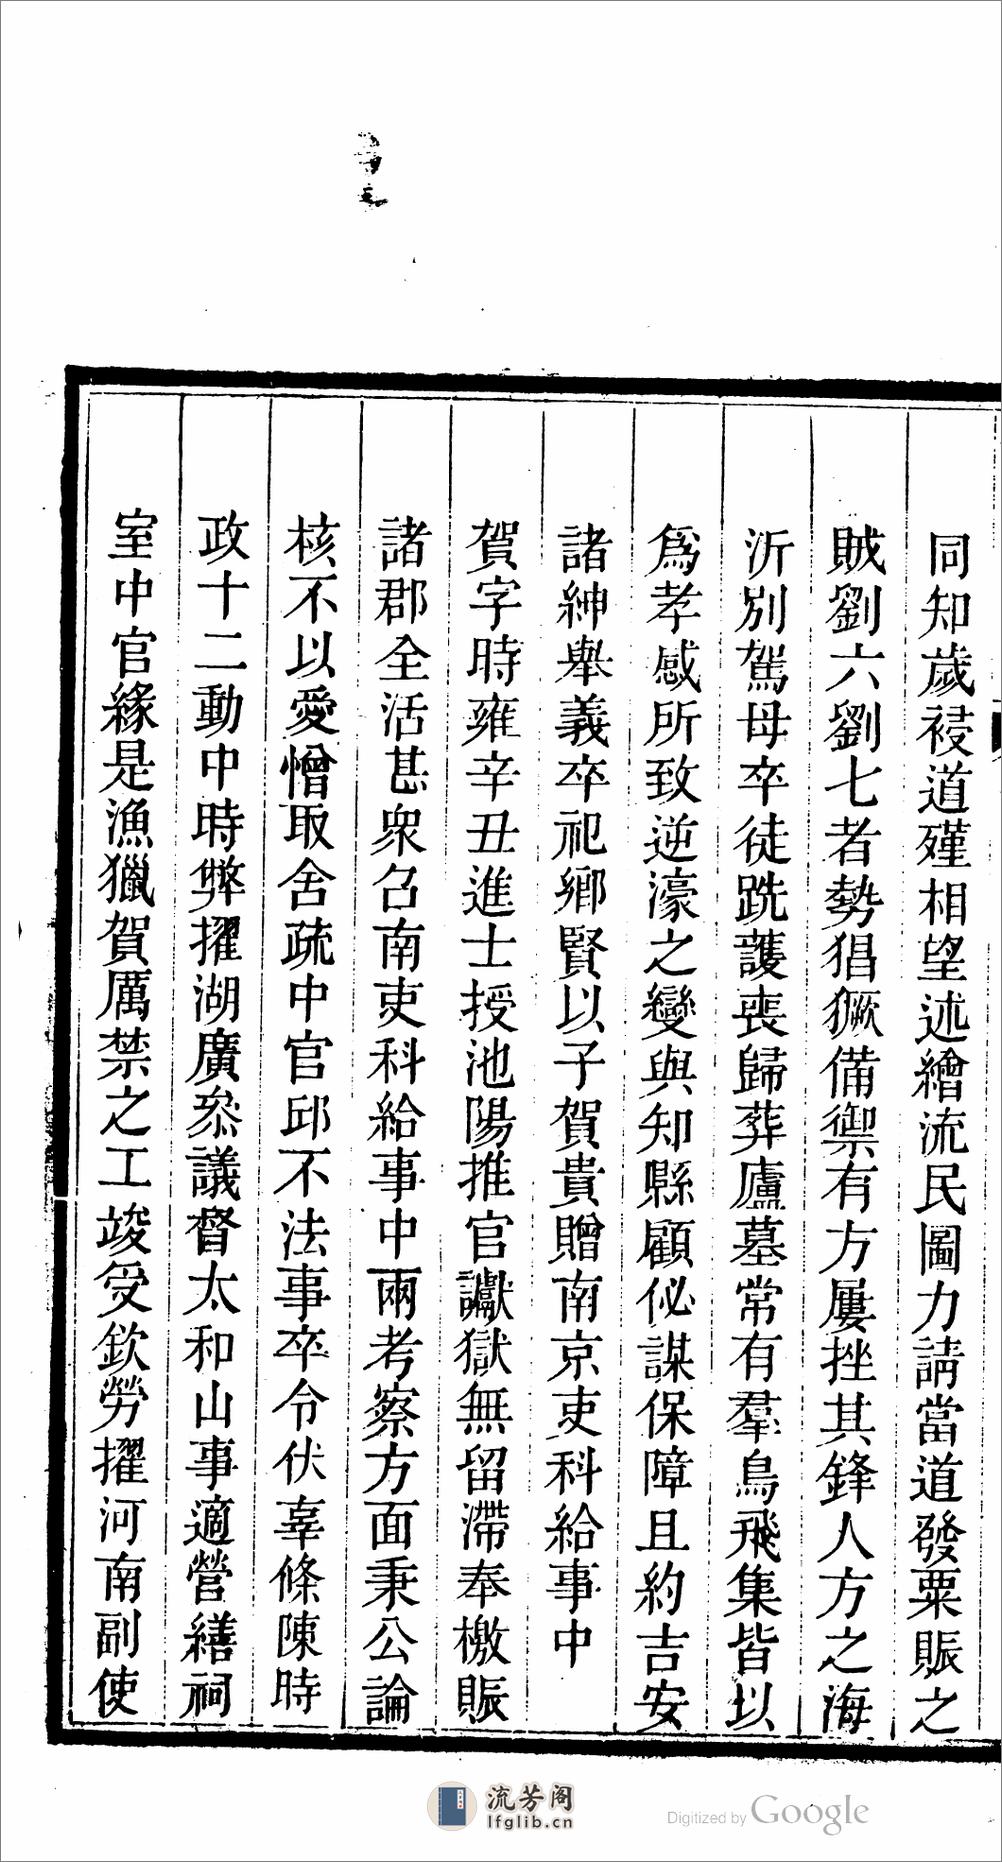 同知歲祲道殣相望述繪流民圖力請當道發粟賑之
賊劉六劉七者勢猖獗備禦有方屢挫其鋒人方之海
沂別駕母卒徒跣護喪歸葬廬墓常有羣鳥飛集皆以
爲孝感所致逆濠之變與知縣顧佖謀保障且約吉安
諸紳舉義卒祀鄉賢以子賀貴贈南京吏科給事中
賀字時雍辛丑進士授池陽推官讞獄無留滯奉檄賑
諸郡全活甚衆召南吏科給事中兩考察方面秉公論
核不以愛憎取舍疏中官邱不法事卒令伏辜條陳時
政十二動中時弊擢湖廣叅議督太和山事適營繕祠
室中官緣是漁獵賀厲禁之工竣受欽勞擢河南副使
流芳阁
lfglib.cn
Digitized by Google